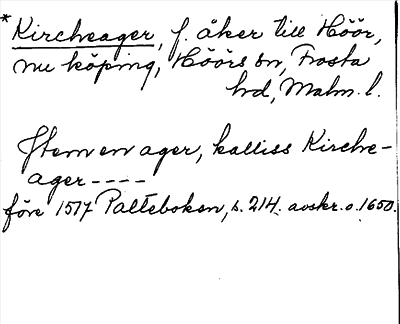 * Kircheager, f. åker till Höör,
nu köping, Höörs sn, Frosta
hd, Malm. l.
Jtem en ager, kalliss Kirche-
ager ----
före 1517 Palteboken, s. 214. avskr. o. 1650.